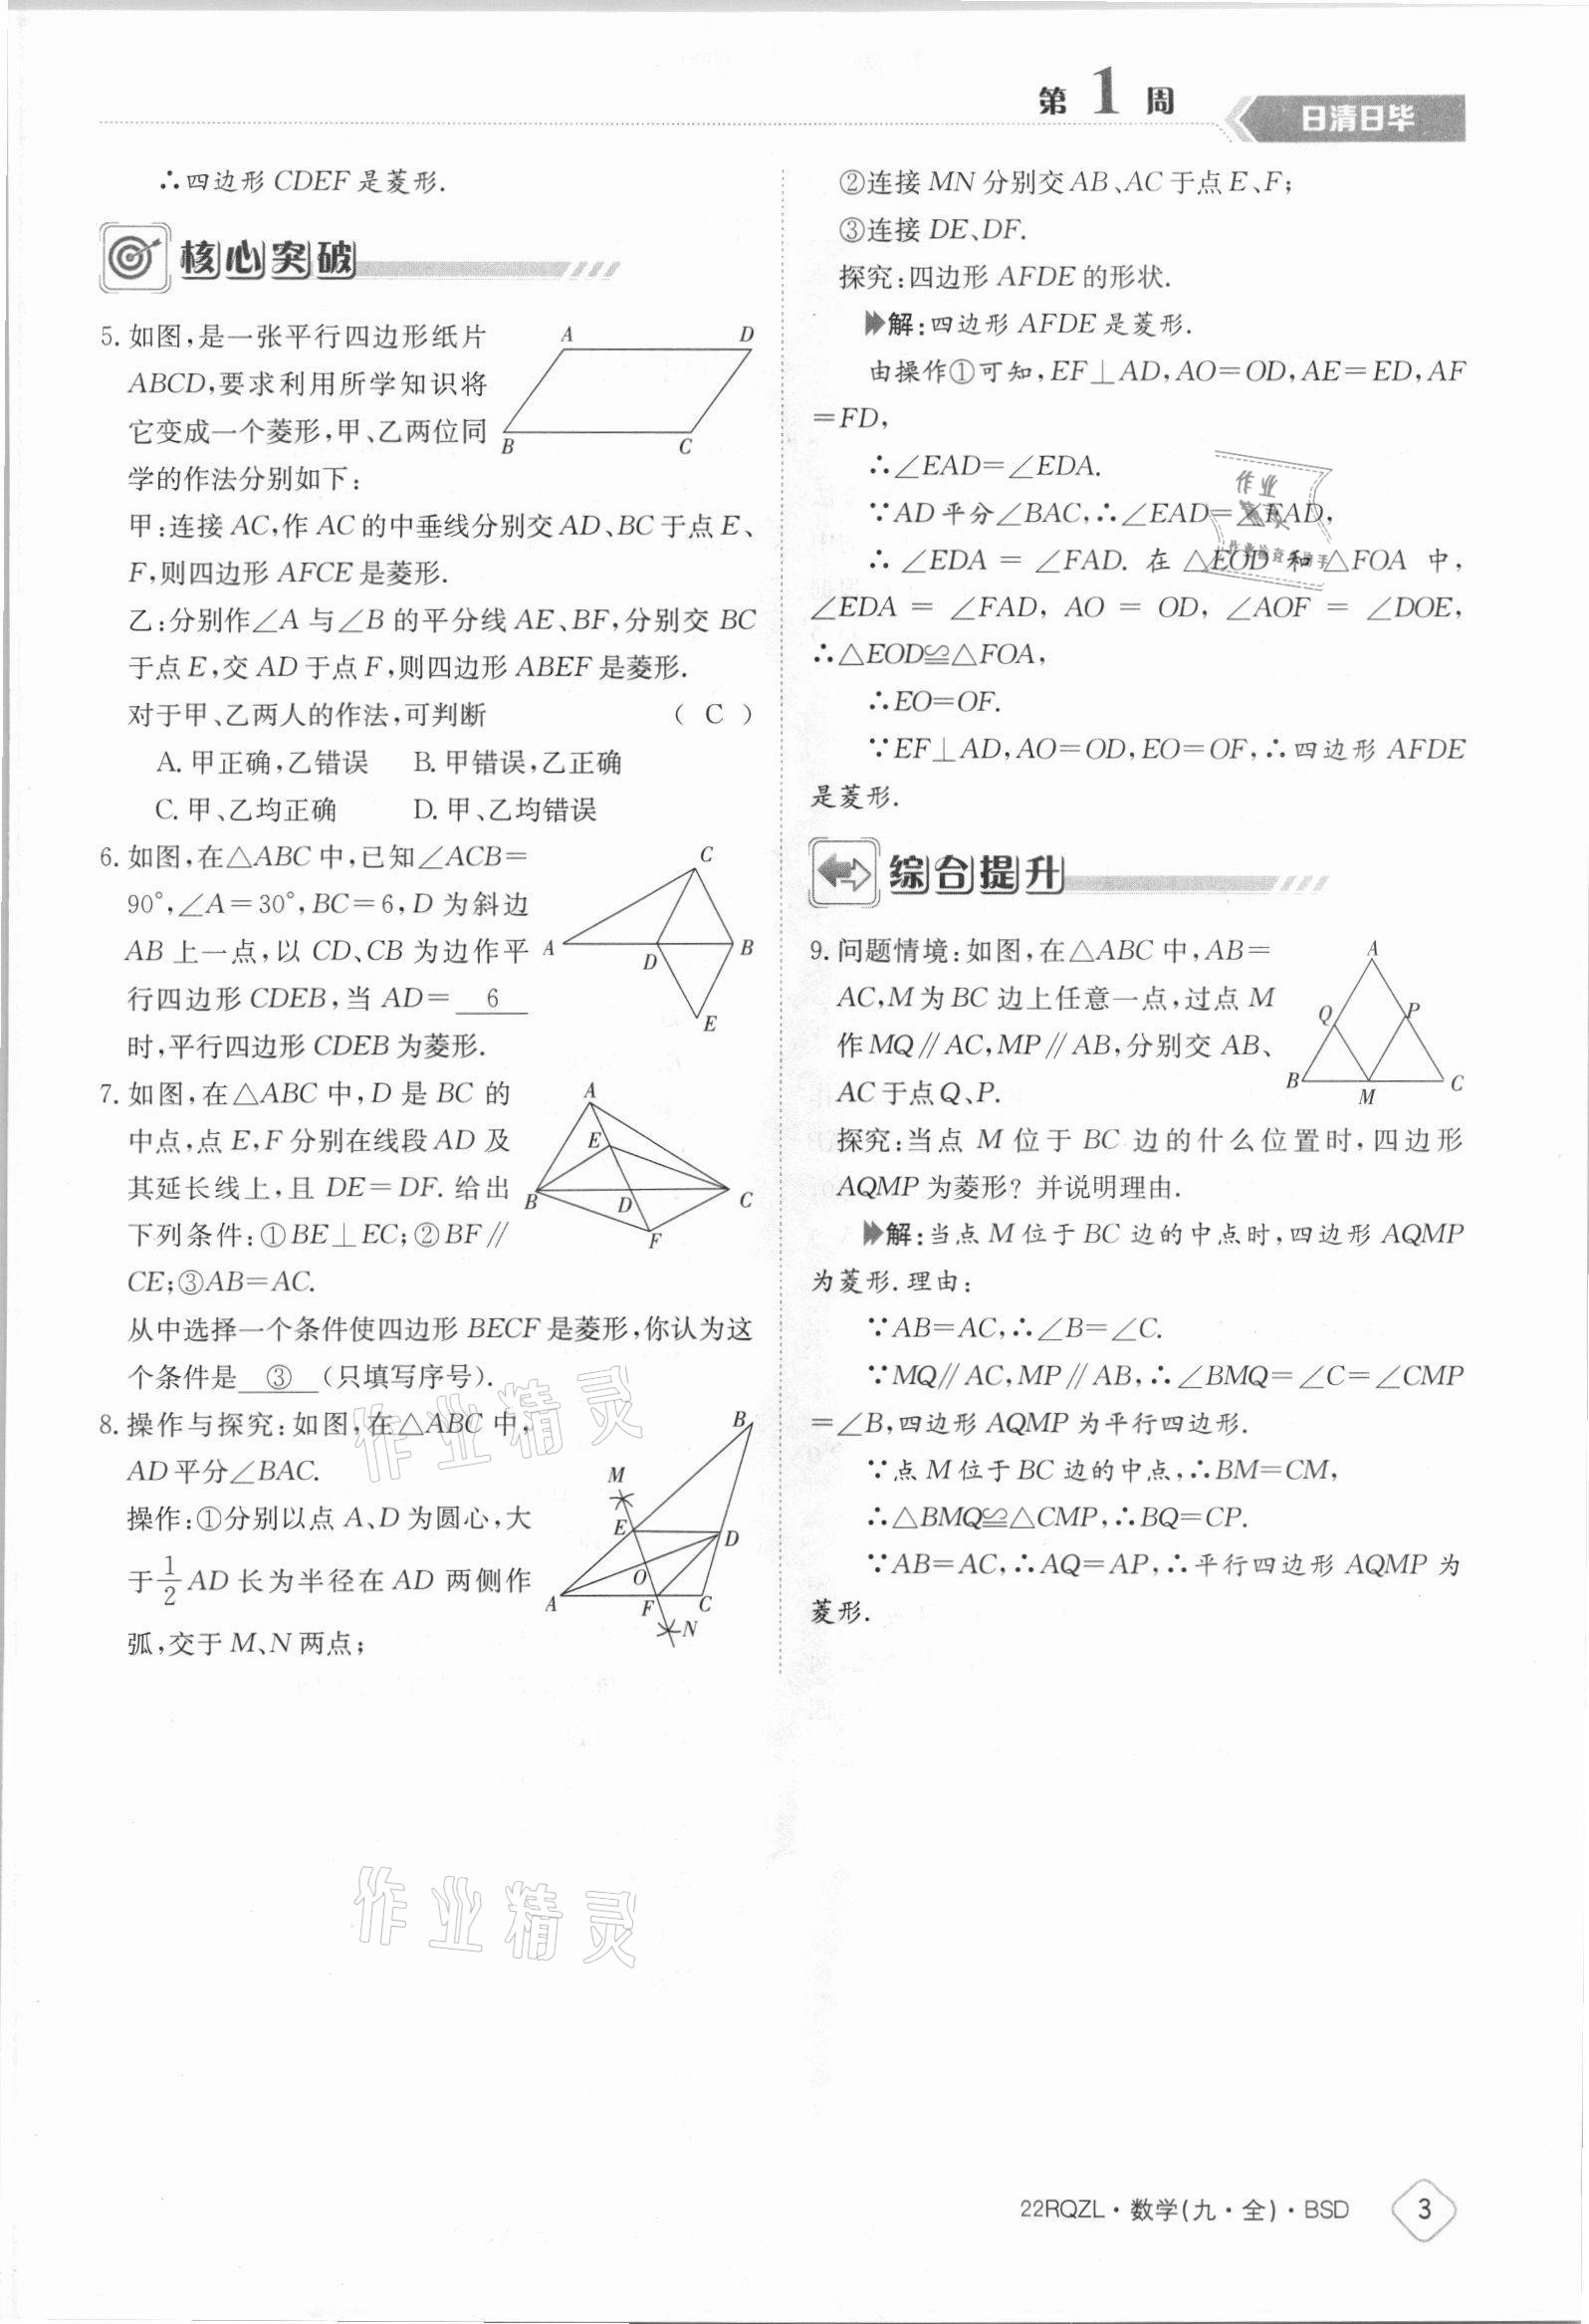 第1周
日清日毕
∴四边形CDEF是菱形.
核心突破
5. 如图,是一张平行四边形纸片
ABCD,要求利用所学知识将
它变成一个菱形,甲、乙两位同
学的作法分别如下:
甲:连接AC,作AC的中垂线分别交AD、BC于点E、
F,则四边形AFCE是菱形.
乙:分别作∠A与∠B的平分线AE、BF,分别交BC
于点E,交AD于点F,则四边形ABEF是菱形.
对于甲、乙两人的作法,可判断 ( C )
A. 甲正确,乙错误 B. 甲错误,乙正确
C. 甲、乙均正确 D. 甲、乙均错误
A D
B C
6. 如图,在△ABC中,已知∠ACB=
90°,∠A=30°,BC=6,D为斜边
AB上一点,以CD、CB为边作平
行四边形CDEB,当AD= 6
时,平行四边形CDEB为菱形.
C
A D B
E
7. 如图,在△ABC中,D是BC的
中点,点E,F分别在线段AD及
其延长线上,且DE=DF. 给出
下列条件:①BE⊥EC;②BF∥
CE;③AB=AC.
从中选择一个条件使四边形BECF是菱形,你认为这
个条件是 ③ (只填写序号).
A
E
B D C
F
8. 操作与探究:如图,在△ABC中,
AD平分∠BAC.
操作:①分别以点A、D为圆心,大
于1/2AD长为半径在AD两侧作
弧,交于M、N两点;
B
M
E D
O
A F C
N
②连接MN分别交AB、AC于点E、F;
③连接DE、DF.
探究:四边形AFDE的形状.
解:四边形AFDE是菱形.
由操作①可知,EF⊥AD,AO=OD,AE=ED,AF
=FD,
∴∠EAD=∠EDA.
∵AD平分∠BAC,∴∠EAD=∠FAD,
∴∠EDA=∠FAD. 在△EOD和△FOA中,
∠EDA=∠FAD, AO=OD, ∠AOF=∠DOE,
∴△EOD≌△FOA,
∴EO=OF.
∵EF⊥AD,AO=OD,EO=OF,∴四边形AFDE
是菱形.
综合提升
9. 问题情境:如图,在△ABC中,AB=
AC,M为BC边上任意一点,过点M
作MQ∥AC,MP∥AB,分别交AB、
AC于点Q、P.
探究:当点M位于BC边的什么位置时,四边形
AQMP为菱形?并说明理由.
A
Q P
B M C
解:当点M位于BC边的中点时,四边形AQMP
为菱形.理由:
∵AB=AC,∴∠B=∠C.
∵MQ∥AC,MP∥AB,∴∠BMQ=∠C=∠CMP
=∠B,四边形AQMP为平行四边形.
∵点M位于BC边的中点,∴BM=CM,
∴△BMQ≌△CMP,∴BQ=CP.
∵AB=AC,∴AQ=AP,∴平行四边形AQMP为
菱形.
作业精灵
作业精灵
22RQZL·数学(九·全)·BSD
3